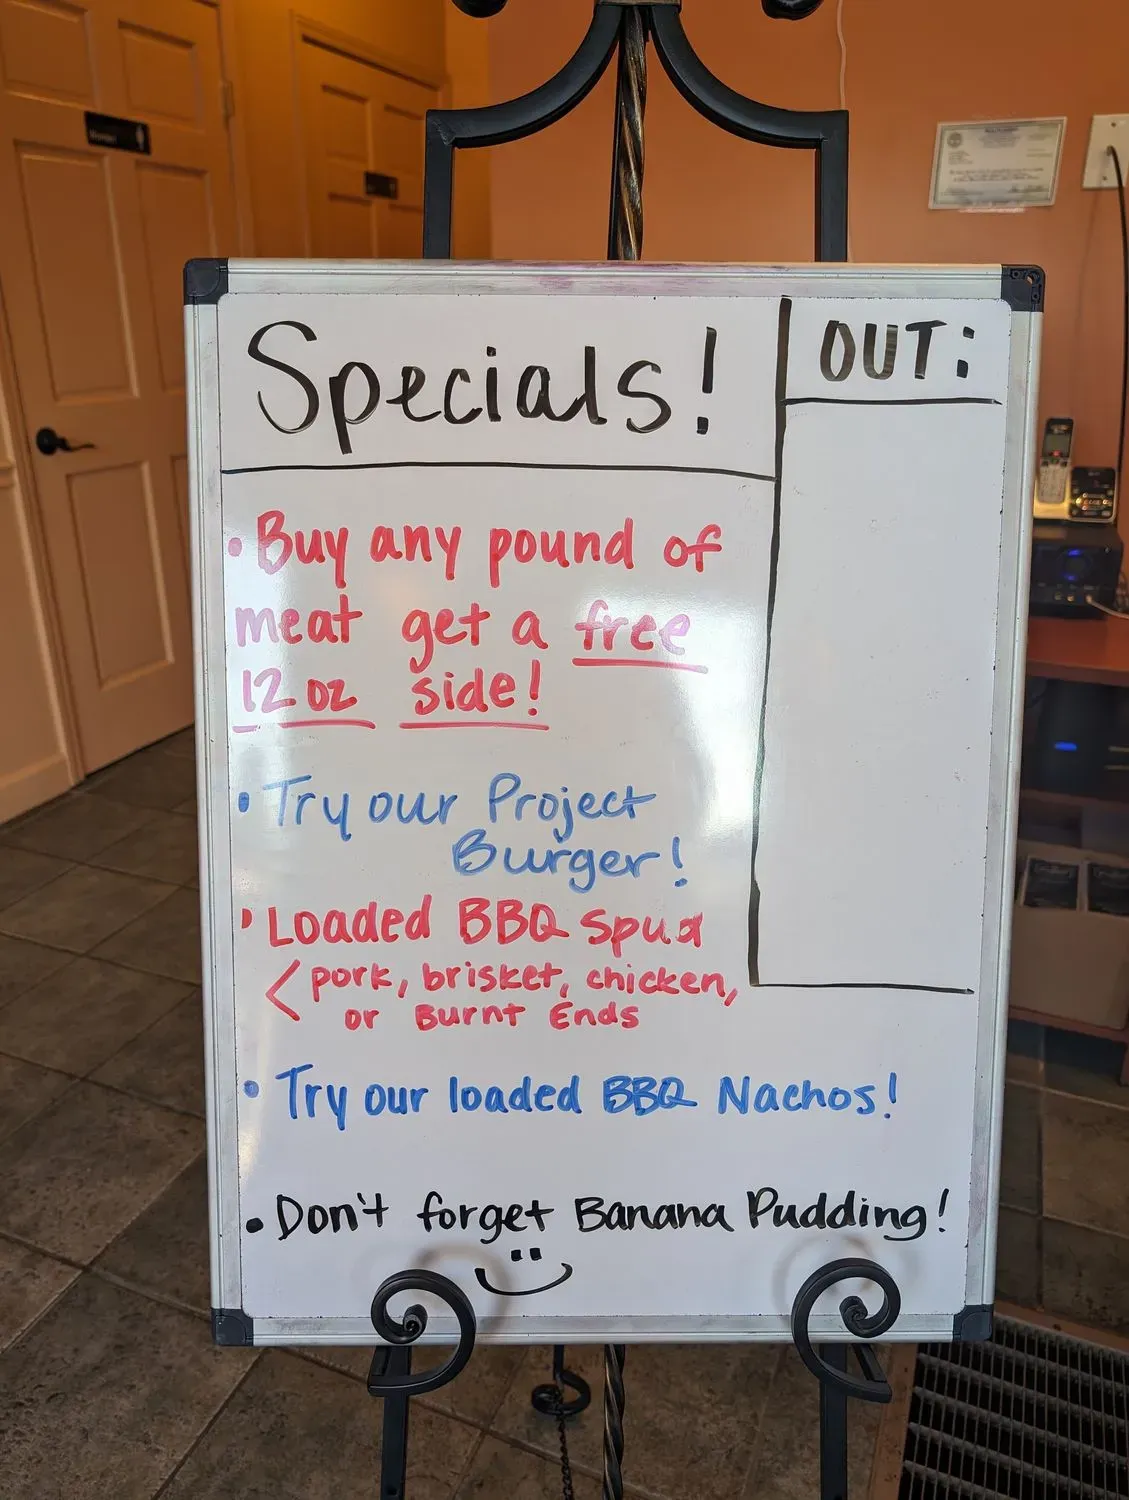 Specials!
OUT:
• Buy any pound of
meat get a free
12 oz side!
• Try our Project
Burger!
• Loaded BBQ Spud
< pork, brisket, chicken,
or Burnt Ends
• Try our loaded BBQ Nachos!
• Don't forget Banana Pudding!